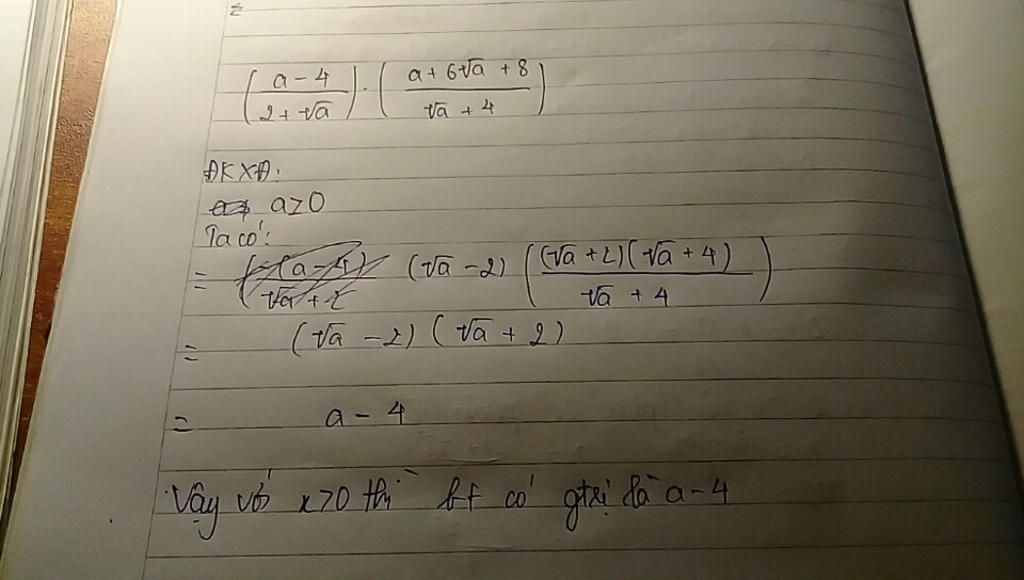 (a - 4 / 2 + √a) . (a + 6√a + 8 / √a + 4)
ĐKXĐ:
a ≥ 0
Ta có:
= (√a - 2) ((√a + 2)(√a + 4) / √a + 4)
= (√a - 2)(√a + 2)
= a - 4
Vậy với x>0 thì bt có gtrị là a - 4